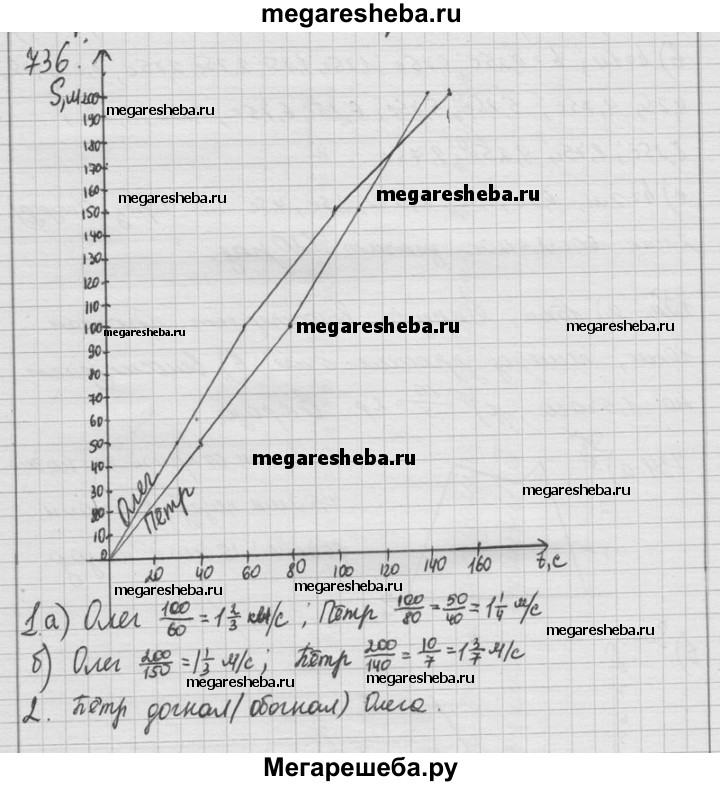 megaresheba.ru
736.
S,м
200
megaresheba.ru
190
180
170
160
megaresheba.ru
megaresheba.ru
150
140
130
120
110
100
megaresheba.ru
megaresheba.ru
megaresheba.ru
90
80
70
60
50
megaresheba.ru
40
30
megaresheba.ru
20
10
0
Олег
Пётр
20 40 60 80 100 120 140 160 t,с
megaresheba.ru
megaresheba.ru
1.а) Олег 100/60 = 1 2/3 м/с ; Пётр 100/80 = 50/40 = 1 1/4 м/с
megaresheba.ru
megaresheba.ru
б) Олег 200/150 = 1 1/3 м/с ; Пётр 200/140 = 10/7 = 1 3/7 м/с
megaresheba.ru
megaresheba.ru
2. Пётр догнал (обогнал) Олега.
Мегарешеба.ру